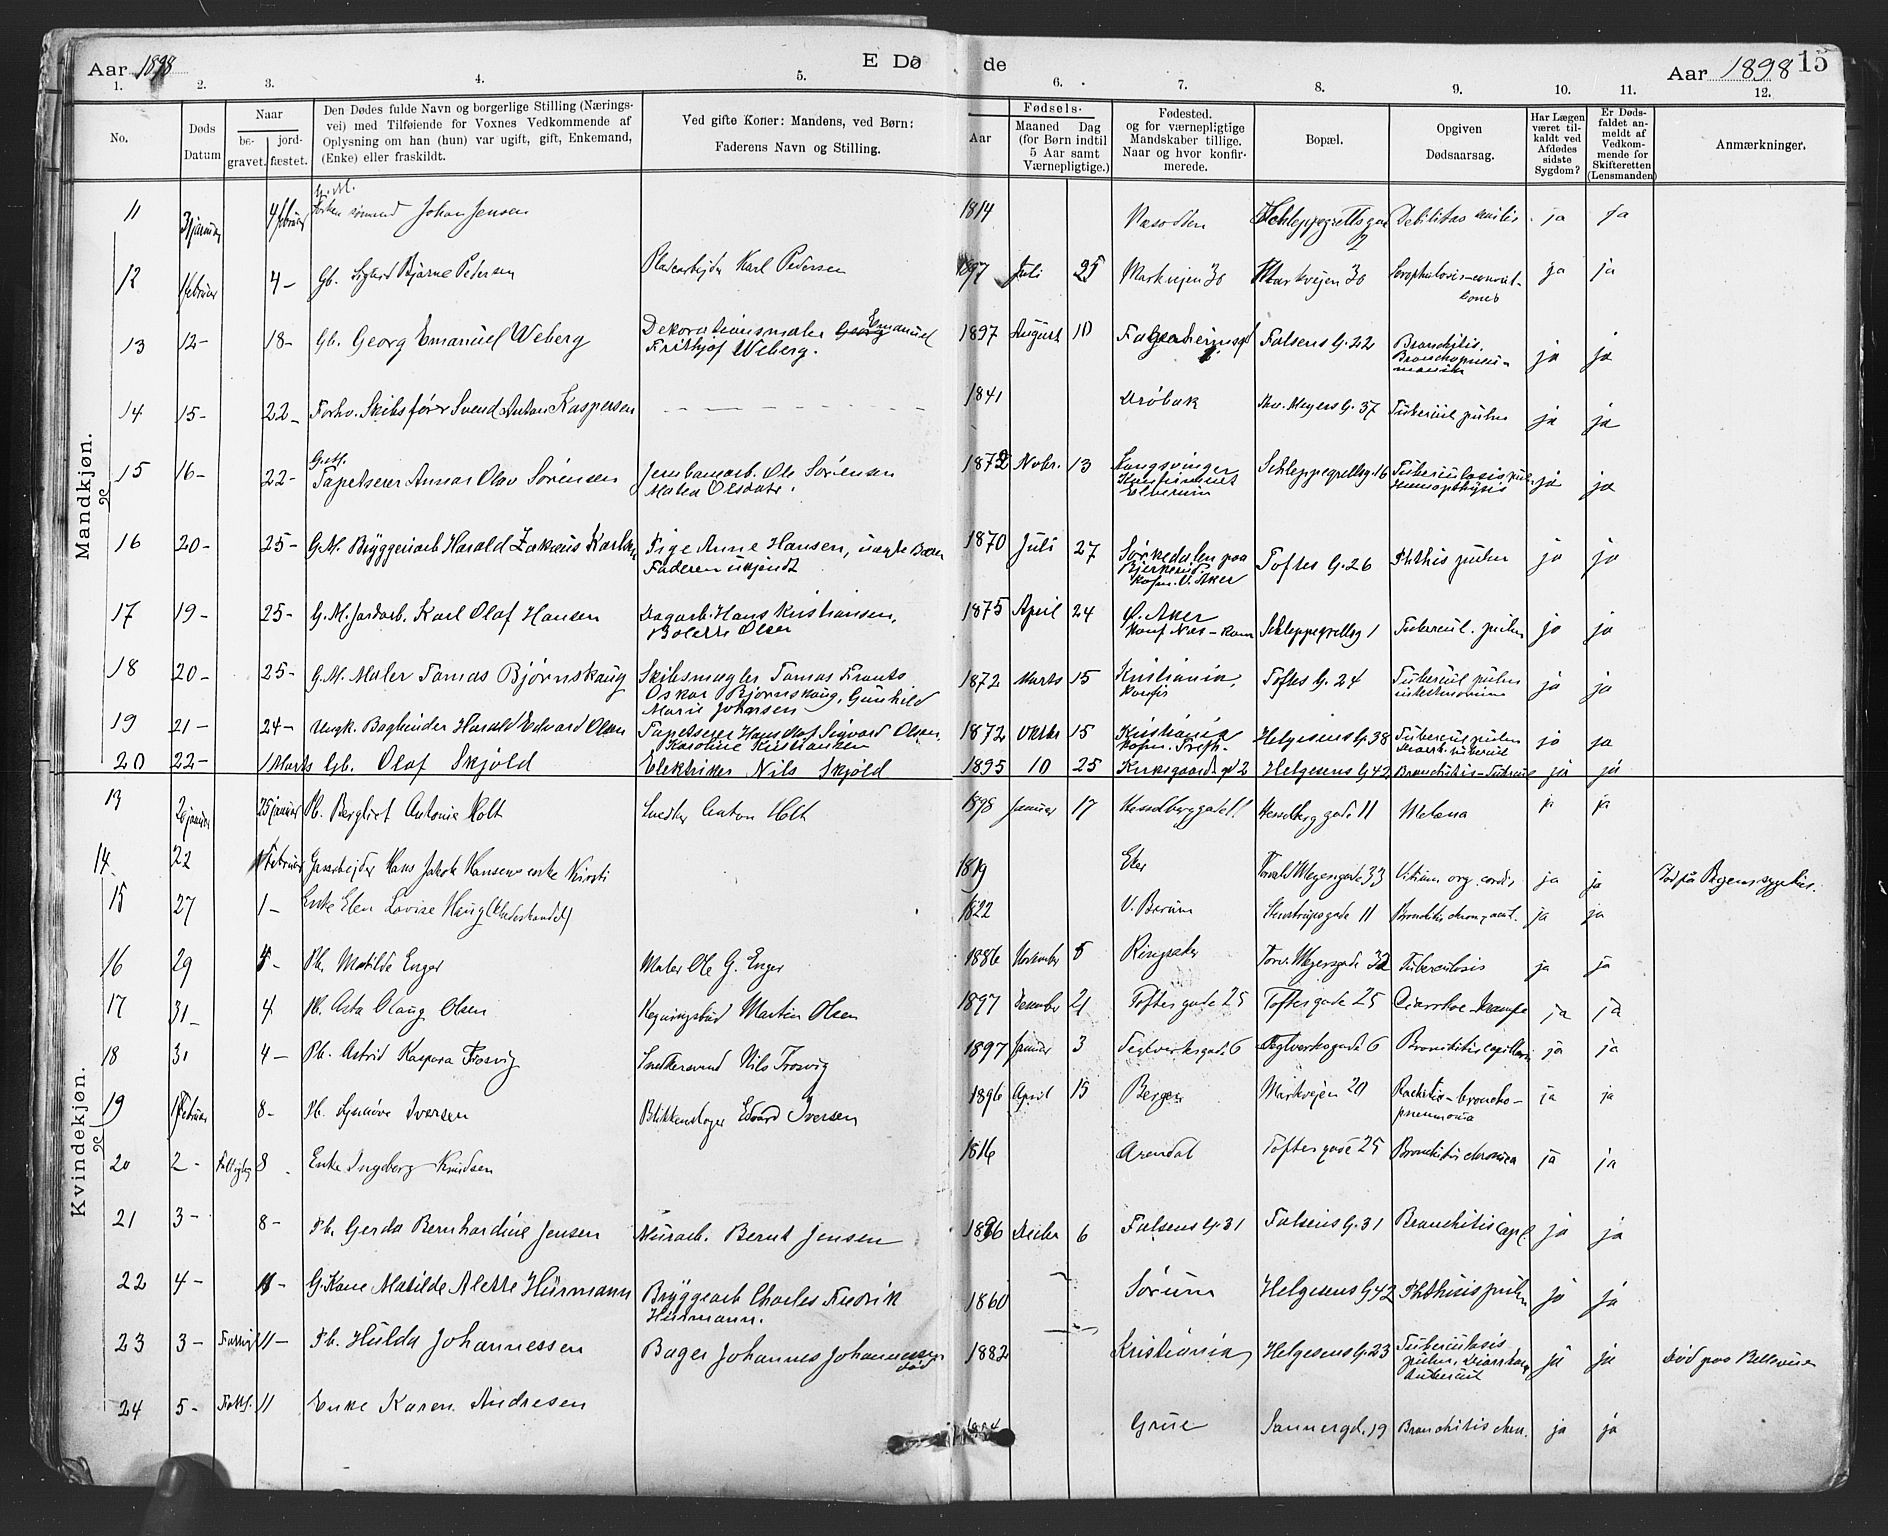 Aar 1898
E. Dø
de
Aar 1898
15
1.
2.
3.
4.
5.
6.
7.
8.
9.
10.
11.
12.
No.
Døds Datum
Naar
be- gravet.
jord- fæstet.
Den Dødes fulde Navn og borgerlige Stilling (Nærings-
vei) med Tilføiende for Voxnes Vedkommende af
Oplysning om han (hun) var ugift, gift, Enkemand,
(Enke) eller fraskildt.
Ved gifte Koner: Mandens, ved Børn:
Faderens Navn og Stilling.
Fødsels-
Aar
Maaned Dag
(for Børn indtil
5 Aar samt
Værnepligtige.)
Fødested.
og for værnepligtige
Mandskaber tillige.
Naar og hvor konfir-
merede.
Bopæl.
Opgiven
Dødsaarsag.
Har Lægen
været til-
kaldt ved
Afdødes
sidste
Sygdom?
Er Døds-
faldet an-
meldt af
Vedkom-
mende for
Skifteretten
(Lensmanden)
Anmærkninger.
Mandkjøn.
11 31 januar 4 februar G.M. Johan Jensen 1814 Næsodden Schleppegrellsgade 2 Debilitas senilis ja ja
12 1 februar 4 – Gb. Sigurd Bjarne Pedersen Pladearbejder Karl Pedersen 1897 Juli 25 Markvejen 30 Markvejen 30 ja ja
13 12 – 18 – Gb. Georg Emanuel Weberg Dekorationsmaler Georg Emanuel
Frithjof Weberg. 1897 August 10 Falsens G. 22 Bronchitis.
Bronchopneu-
monia ja ja
14 15 – 22 – Forhv. Skibsfører Svend Anton Kaspersen – – – – 1841 Drøbak Thv. Meyers G. 37 Tubercul pulm ja ja
15 16 – 22 – G.M.
Tapetserer Annar Olav Sørensen Jernbanearb. Ole Sørensen
Malea Olsdatr. 1872 Novbr. 13 Kongsvinger
Elverum Schleppegrellsg. 16 Tuberculosis pulm
Hæmopthysis ja ja
16 20 – 25 – G.M. Bryggeriarb Harald Zakæus Karlsen Pige Anne Hansen, uægte Barn
Faderen ukjendt 1870 Juli 27 Sørkedalen paa
Bjerkerud.
Kofm. V. Aker Toftes G. 26 Phthisis pulm ja ja
17 19 – 25 – G.M. Jordarb. Karl Olaf Hansen Dagarb. Hans Kristiansen,
Bolette Olsen 1875 April 24 Ø. Aker Schleppegrellsg 1 Tubercul. pulm ja ja
18 20 – 25 – G.M. Maler Tomas Bjørnskaug Skibsmægler Tomas Frants
Oskar Bjørnskaug, Gunhild
Marie Johansen 1872 Marts 15 Kristiania, Toftes G. 24 Tubercul pulm ja ja
19 21 – 24 – Ungk. Bogbinder Harald Edvard Olsen Tapetserer Hans Olaf Sigvard Olsen,
Karoline Kristiansen 1872 Oktbr 15 Kristiania Helgesens G. 38 Tubercul pulm ja ja
20 22 – 1 Marts Gb. Olaf Skjøld Elektriker Nils Skjøld 1895 10 25 Kirkegaardsgd 2 Helgesens G 42 Bronchitis – Tubercul ja ja
Kvindekjøn.
13 20 januar 25 januar Pb. Bergliot Antonie Holt Snedker Anton Holt 1898 Januar 17 Hesselberggade 11 Hesselberggade 11 Melæna ja ja
14 22 1 Februar Gasarbejder Hans Jakob Hansens enke Kirsti 1819 Eker Torvald Meyersgade 33 Vitium org. cordis ja ja
15 27 1 – Enke Elen Lovise Haug 1822 V. Bærum Steenstrupsgade 11 ja ja
16 29 4 – Pb. Matilde Enger Maler Ole G. Enger 1886 November 5 Ringsaker Torv. Meyersgade 32 Tuberculosis ja ja
17 31 – 4 Pb. Asta Olaug Olsen Regningsbud Martin Olsen 1897 December 21 Toftes gade 25 Toftes gade 25 Diarrhoe – Krampe ja ja
18 31 4 – Pb. Astrid Kaspara Trosvig Snedkersvend Nils Trosvig 1897 Januar 3 Teglverksgade 6 Teglverksgade 6 Bronkitis capillaris ja ja
19 1 Februar 8 – Pb. Synnøve Iversen Blikkenslager Edvard Iversen 1896 April 15 Bergen Markvejen 20 Rachitis – broncho-
pneumonia ja ja
20 2 – 8 Enke Ingeborg Knudsen 1816 Arendal Toftes gade 25 Bronchitis chronica ja ja
21 3 – 8 – Pb. Gerda Bernhardine Jensen Murarb. Bernt Jensen 1896 Decbr 6 Falsens G. 31 Falsens G. 31 Bronchitis capil ja ja
22 4 – 11 – G. Kone Matilde Alette Hürmann Bryggearb Charles Fredrik
Hürmann. 1860 Sørum Helgesens G 42 Phthisis pulm ja ja
23 3 – 11 – Pb. Hulda Johannessen Bager Johannes Johannessen
død 1882 Kristiania Helgesens G. 23 Tuberculosis
pulm, Diarrhoea
tubercul ja ja Død paa Bellevue
24 5 – 11 Enke Karen Andresen Grue Sannergd. 19 Bronchitis chron. ja ja